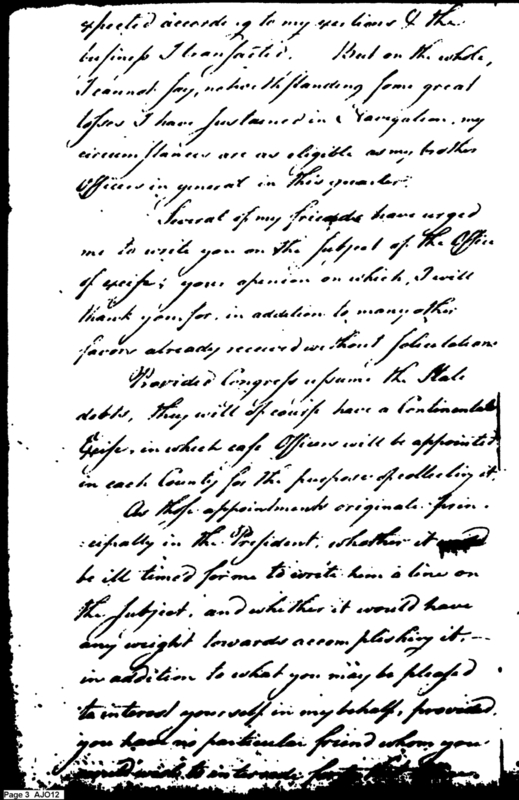 expected according to my exertions & the
business I transacted. But on the whole,
I cannot say, notwithstanding some great
losses I have sustained in Navigation, my
circumstances are as eligible as my brother
Officers in general in this quarter.
Several of my friends have urged
me to write you on the subject of the Office
of excise; your openion on which, I will
thank you for, in addition to many other
favors already received without solicitations
Provided Congress assume the State
debts, they will of course have a Continental
Excise, in which case Officers will be appointed
in each County for the purpose of collecting it.
As those appointments originate prin-
:cipally in the President, whether it
be ill timed for me to write him a line on
the subject, and whether it would have
any weight towards accomplishing it,—
in addition to what you may be pleased
to interest yourself in my behalf, provided
you have no particular friend whom you
would wish to intercede for
Page 3 AJO12